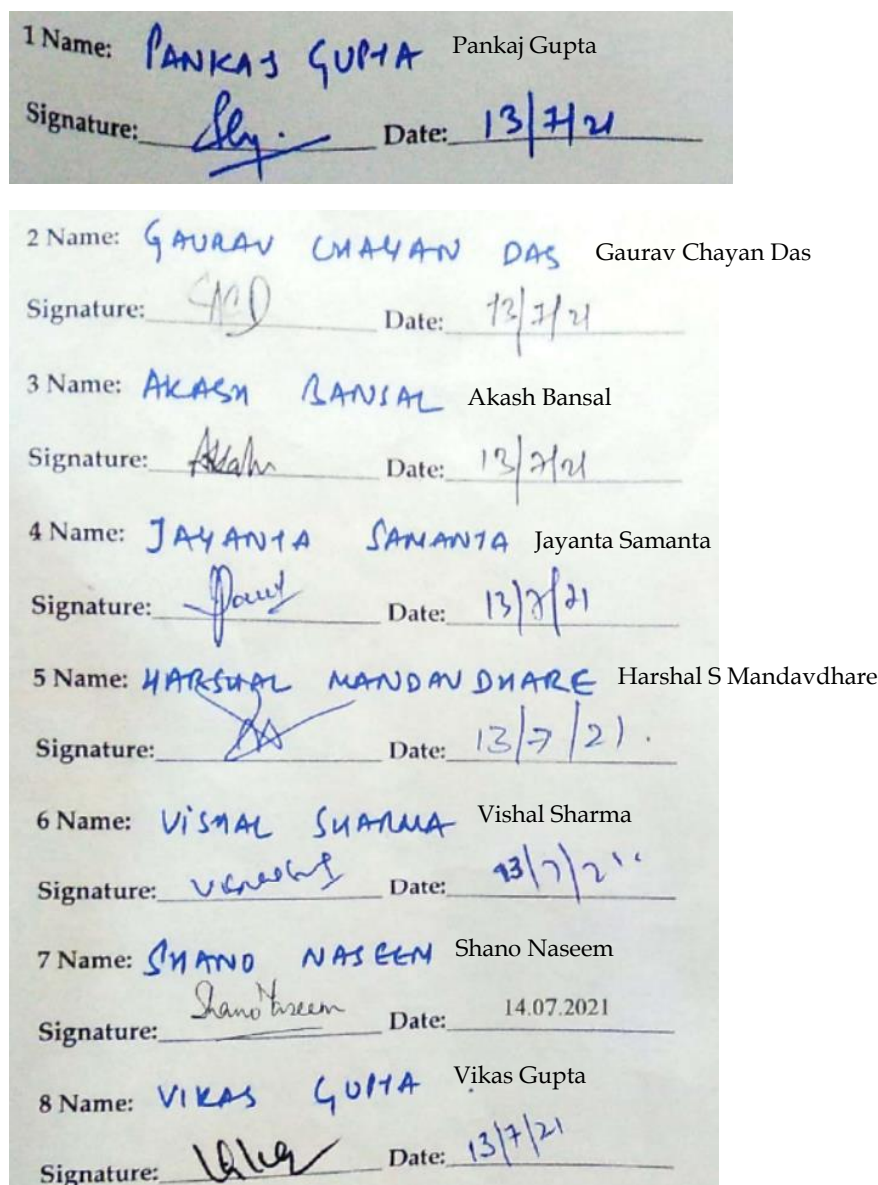 1 Name: PANKAJ GUPTA Pankaj Gupta
Signature: Date: 13/7/21
2 Name: GAURAV CHAYAN DAS Gaurav Chayan Das
Signature: GCD Date: 13/7/21
3 Name: AKASH BANSAL Akash Bansal
Signature: Akash Date: 13/7/21
4 Name: JAYANTA SAMANTA Jayanta Samanta
Signature: Date: 13/7/21
5 Name: HARSHAL MANDAVDHARE Harshal S Mandavdhare
Signature: Date: 13/7/21.
6 Name: VISHAL SHARMA Vishal Sharma
Signature: Date: 13/7/21
7 Name: SHANO NASEEM Shano Naseem
Signature: Shano Naseem Date: 14.07.2021
8 Name: VIKAS GUPTA Vikas Gupta
Signature: Date: 13/7/21